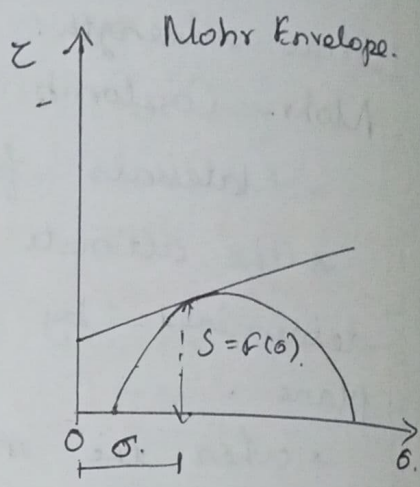 Mohr Envelope.
τ
S = f(σ).
O
σ.
σ.